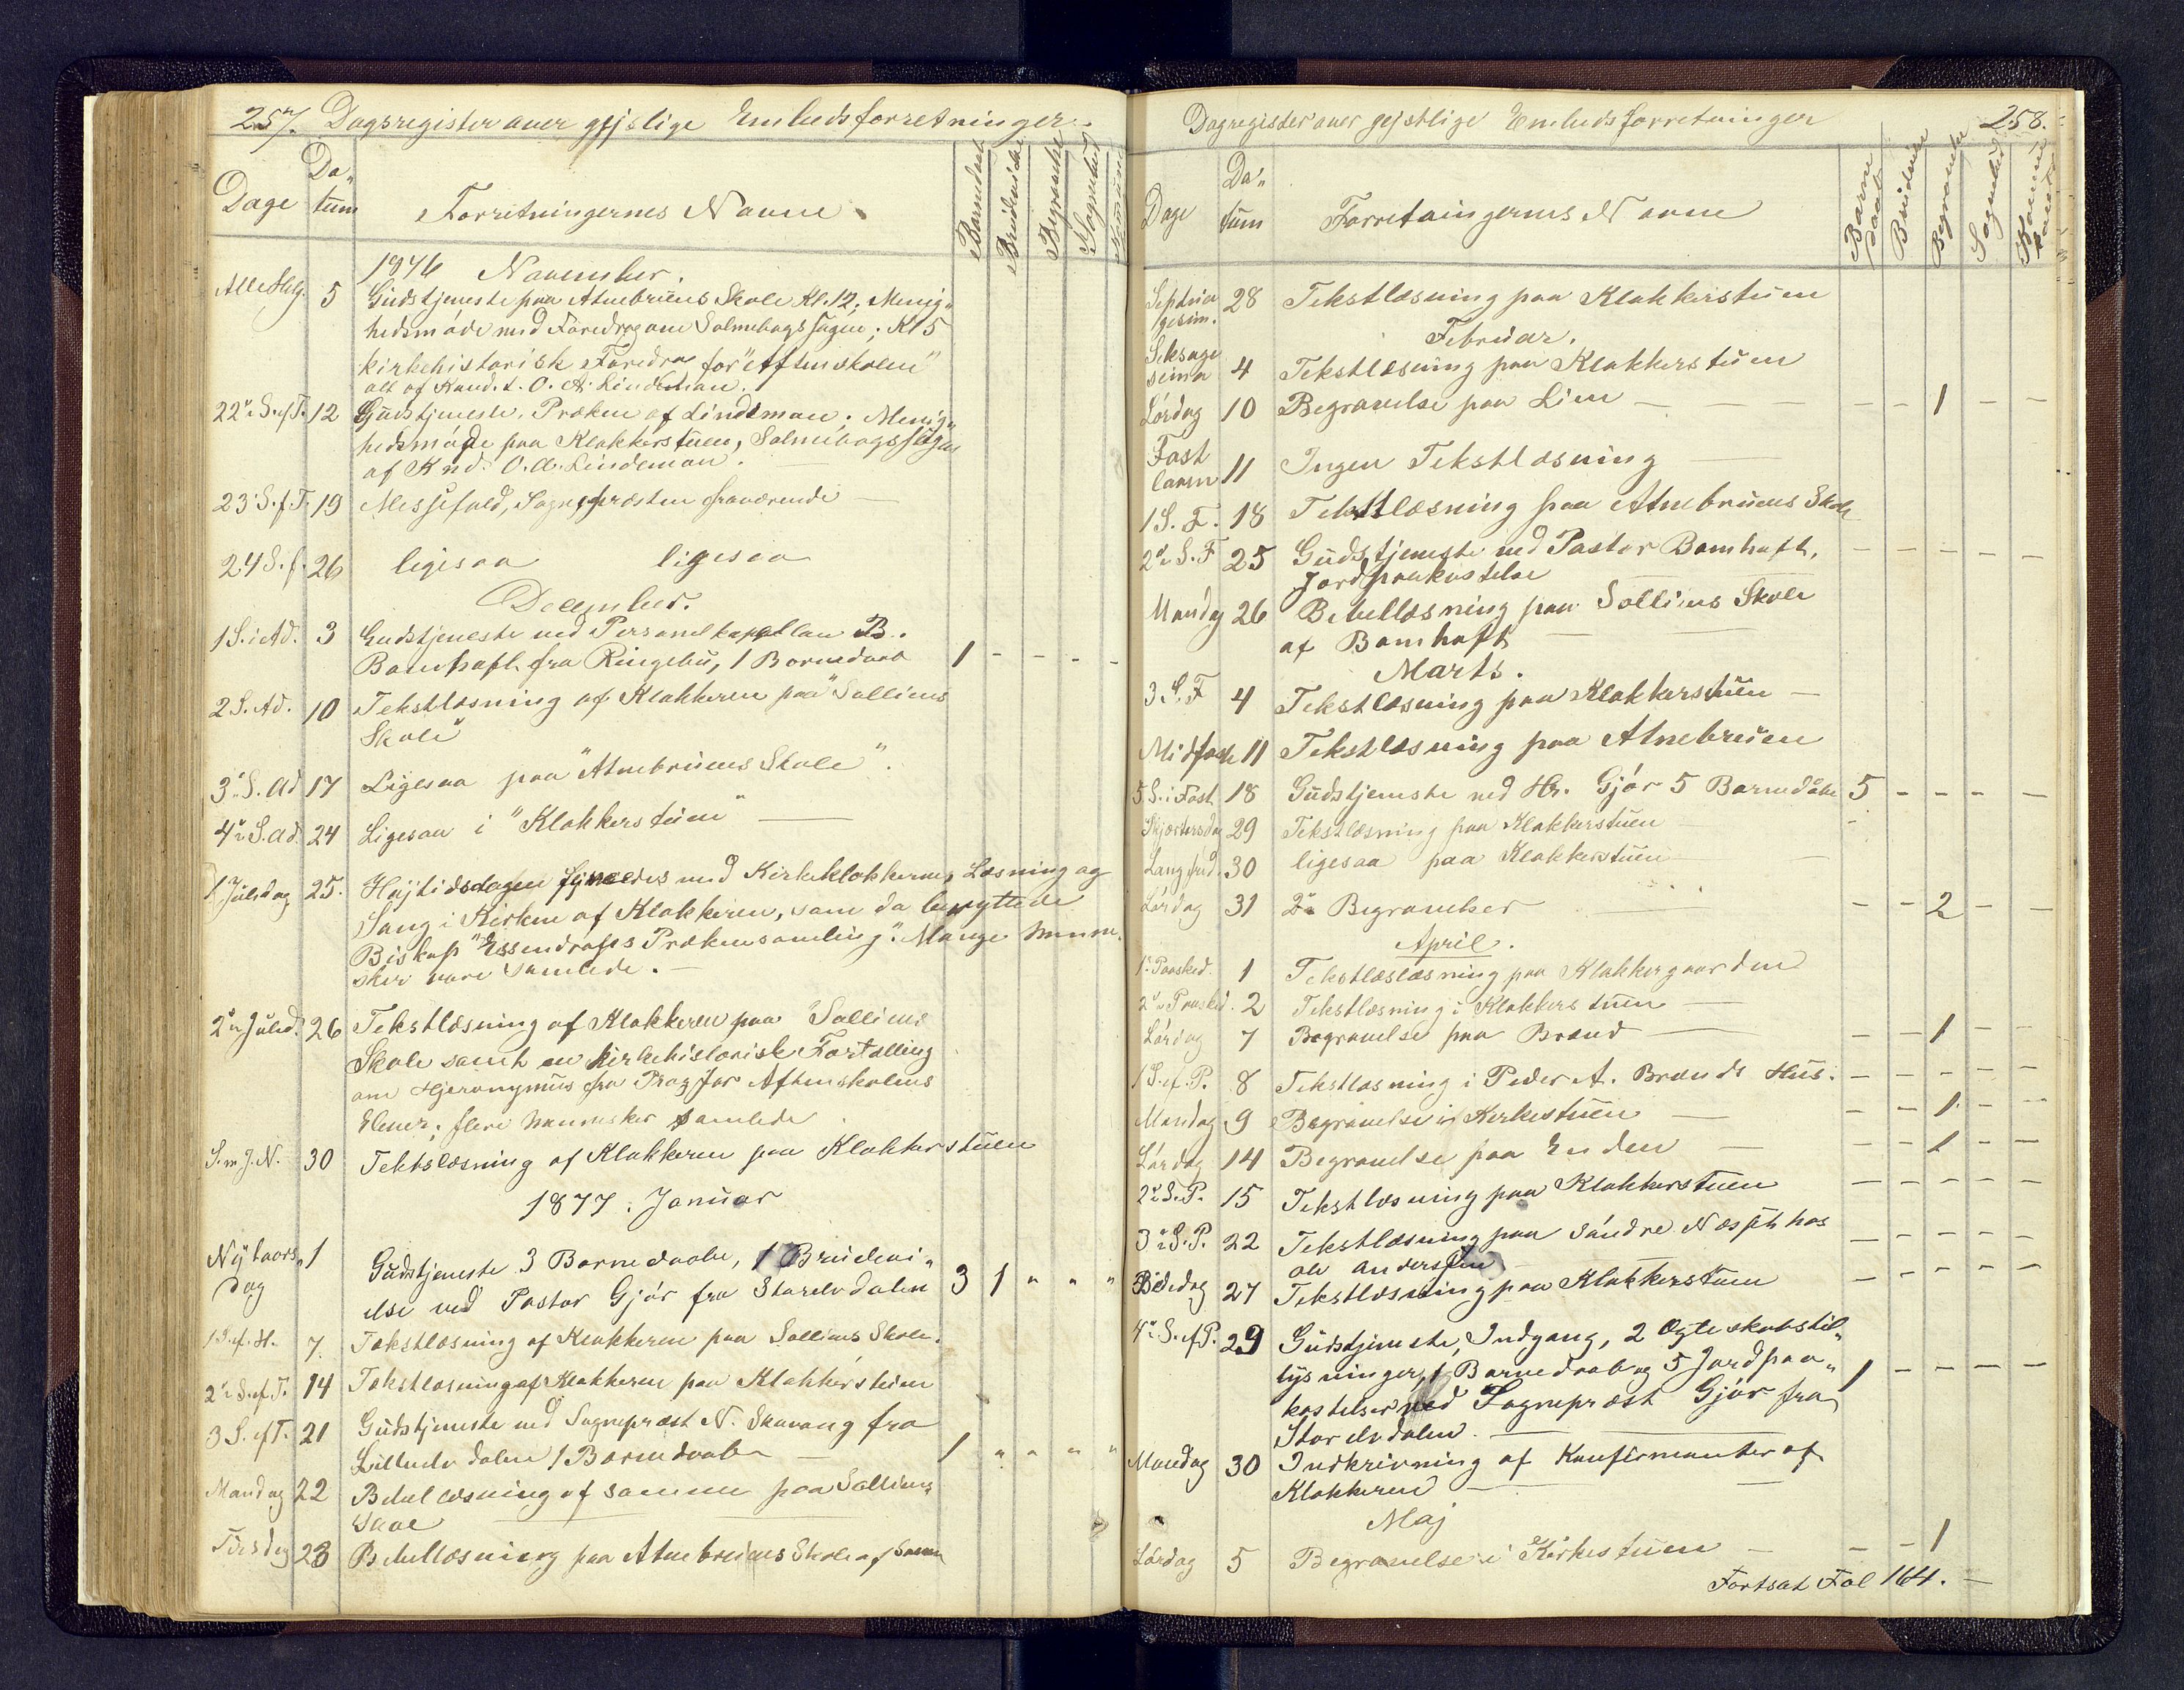 257. Dagsregister over gejslige Embedsforretninger.
Dage Da„tum Forretningernes Navne. Barnedaab Brudevielse Begravelse Sognebud
1876 November.
Alle Helg. 5 Gudstjeneste paa Atnebruens Skole Kl. 12; Menig„
hedsmøde med Foredrag om Salmebogssagen; Kl 5
kirkehistorisk Foredra for "Aftenskolen"
alt af Kand. t. O. A. Lindeman.
22de S. ef T. 12 Gudstjeneste. Præken af Lindeman. Menig„
hedsmøde paa Klokkerstuen, Salmebogssagen
af Knd. O. A. Lindeman.
23 S. f T. 19 Messefald, Sognepræsten fraværende —
24 S. f. 26 ligesaa ligesaa
December.
1 S. i Ad. 3 Gudstjeneste ved Personelkapellan B.
Bomhoft fra Ringebu, 1 Barnedaab 1 - - - -
2 S. Ad. 10 Tekstlæsning af Klokkeren paa "Solliens
Skole"
3 S. Ad 17 Ligesaa paa "Atnebruens Skole".
4de S. Ad. 24 Ligesaa i "Klokkerstuen" —
1 Juledag 25. Højtidsdagen med Kirkeklokkernes Læsning og
Sang i Kirken af Klokkeren, som da benyttede
Biskop "Essendrops Prækensamling". Mange Menne„
sker vare samlede. —
2den Juled. 26 Tekstlæsning af Klokkeren paa "Solliens
Skole samt en kirkehistorisk Fortælling
om Hjeronymus fra Prag for Aftenskolens
Elever; flere Mennesker samlede.
S. m J. N. 30 Tektslæsning af Klokkeren paa Klokkerstuen
1877. Januar
Nytaars„ 1 Gudstjeneste 3 Barnedaabe, 1 Brudevi„
dag else ved Pastor Gjør fra Storelvdalen 3 1 " " "
1 S. ef. H. 7. Tækstlæsning af Klokkeren paa Solliens Skole.
2den S. ef T. 14 Tækstlæsning af Klokkeren paa Klokkerstuen
3 S. ef T. 21 Gudstjeneste ved Sognepræst N. Skavang fra
Lilleelvdalen 1 Barnedaab — 1 " " " "
Mandag 22 Bibellæsning af samme paa Solliens
Skole
Tirsdag 23 Bibellæsning paa Atnebruens Skole af samme
Dagregister over gejstlige Embedsforretninger 258.
Dage Da„tum Forretningernes Navne Barnedaab Brudevielse Begravelse Sognebud
Septua
gesim. 28 Tekstlæsning paa Klokkerstuen
Februar.
Seksage
sima 4 Tekstlæsning paa Klokkerstuen
Lørdag 10 Begravelse paa Lien — — — - - 1 - -
Fast
laven 11 Ingen Tekstlæsning —
1 S. F. 18 Tekstlæsning paa Atnebruens Skole
2den S. F 25 Gudstjeneste ved Pastor Bomhoft, - - - - -
Jordpaakastelse
Mandag 26 Bibellæsning paa Solliens Skole
af Bomhoft —
Marts.
3 S. F 4 Tekstlæsning paa Klokkerstuen —
Midfast 11 Tekstlæsning paa Atnebruen
5 S. i Fast 18 Gudstjeneste ved Hr. Gjør 5 Barnedåbe 5 - - - -
Skjærtorsdag 29 Tekstlæsning paa Klokkerstuen -
Langfred. 30 ligesaa paa Klokkerstuen —
Lørdag 31 2de Begravelser - - 2 - -
April.
1. Paasked. 1 Tekstlæslæsning paa Klokkergaarden
2den Paasked. 2 Tekstlæsning i Klokkerstuen —
Lørdag 7 Begravelse paa Brænd — - - 1 - -
1 S. ef. P. 8 Tekstlæsning i Peder A. Brænds Hus. - - - - -
Mandag 9 Begravelse i Kirkestuen — - - 1 - -
Lørdag 14 Begravelse paa Enden — - - 1 - -
2den S. P. 15 Tekstlæsning paa Klokkerstuen - - - - -
3de S. P. 22 Tekstlæsning paa Søndre Næsset hos
Ole Andersen - - - - -
Bededag 27 Tekstlæsning paa Klokkerstuen - - - - -
4de S. ef P. 29 Gudstjeneste, Indgang, 2 Ægteskabstil„
lysninger, 1 Barnedaab og 5 Jordpaa„ 1 - - - -
kastelser ved Sognepræst Gjør fra
Storelvdalen. —
Mandag 30 Indkrivning af Konfirmanter af
Klokkeren —
Maj
Lørdag 5 Begravelse i Kirkestuen — - - 1
Fortsat Fol 164. —